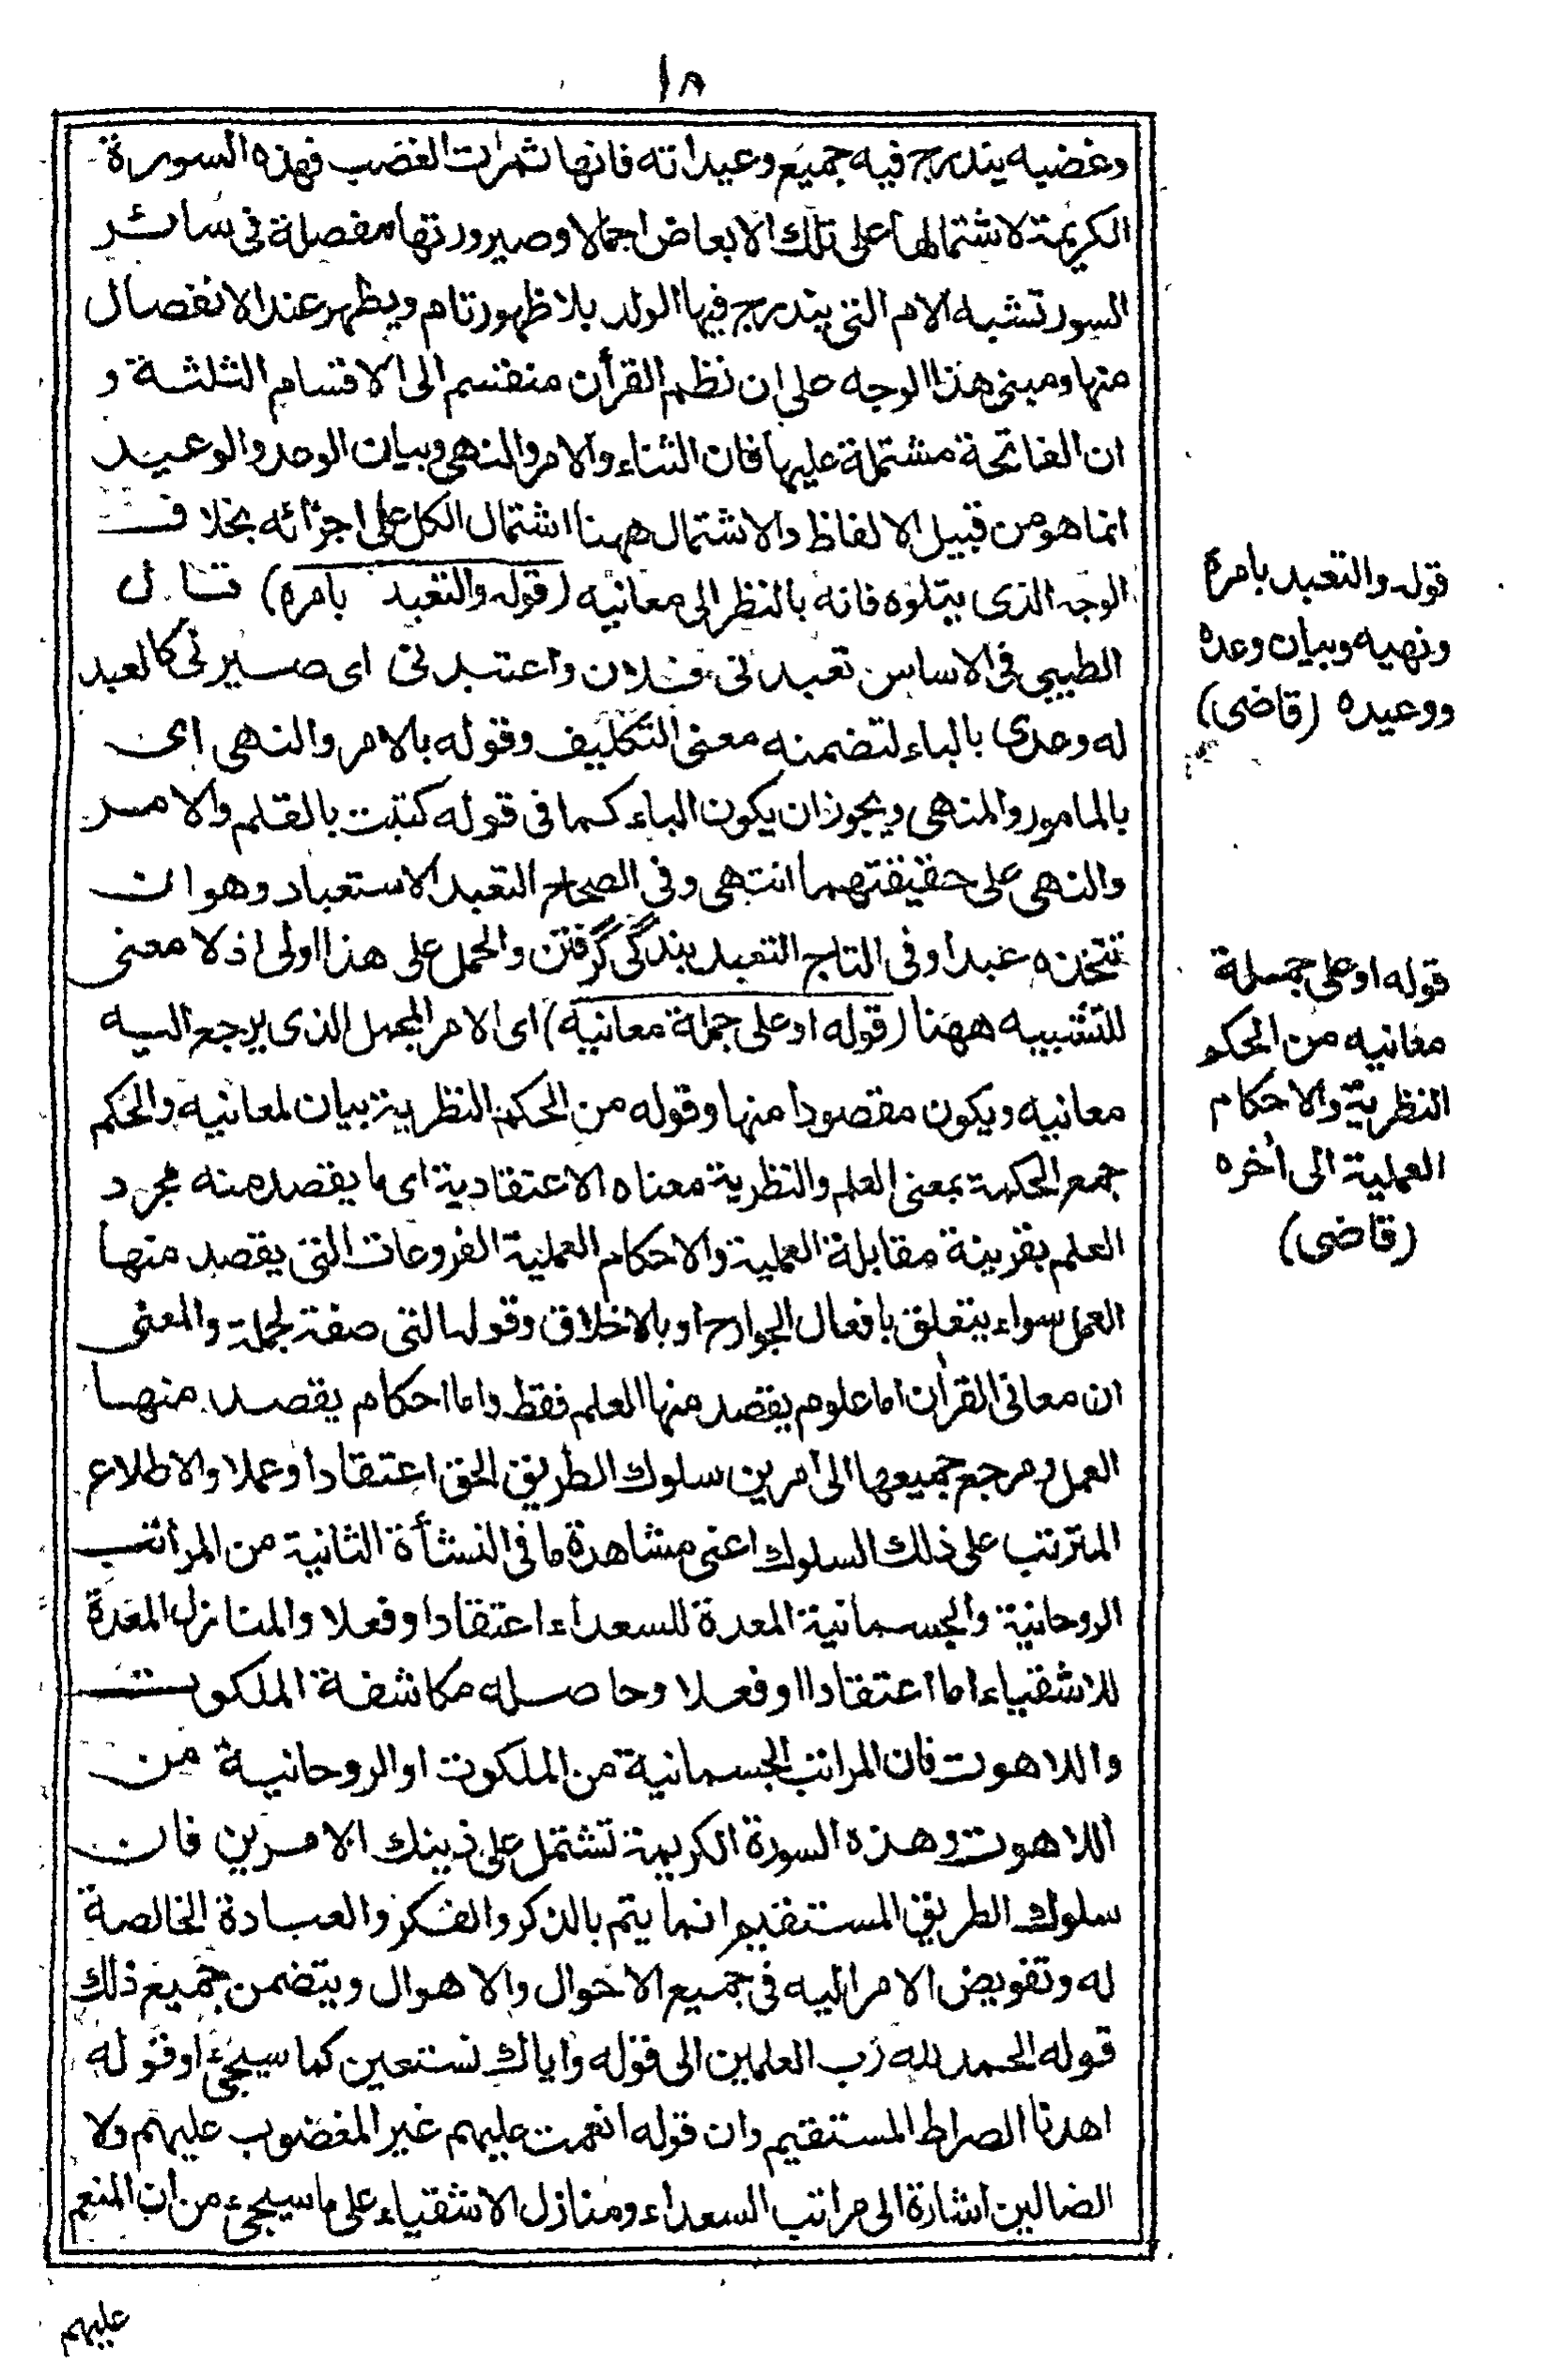 ١٨
وغضبه يندرج فيه جميع وعيداته فانها ثمرات الغضب فهذه السورة
الكريمة لاشتمالها على تلك الابعاض اجمالا وصيرورتها مفصلة فى سائر
السور تشبه الام التى يندرج فيها الولد بلا ظهور تام ويظهر عند الانفصال
منها ومبنى هذا الوجه على ان نظم القرأن منقسم الى الاقسام الثلثة و
ان الفاتحة مشتملة عليها فان الثناء والامر والنهى وبيان الوعد والوعيد
انما هو من قبيل الالفاظ والاشتمال ههنا اشتمال الكل على اجزائه بخلاف
الوجه الذى يتلوه فانه بالنظر الى معانيه (قوله والتعبد بامره) قال
الطيبى فى الاساس تعبدنى فلان واعتبدنى اى صيرنى كالعبد
له وعدى بالباء لتضمنه معنى التكليف وقوله بالامر والنهى اى
بالمامور والمنهى ويجوز ان يكون الباء كما فى قوله كتبت بالقلم والامر
والنهى على حقيقتهما انتهى وفى الصحاح التعبد الاستعباد وهو ان
تتخذه عبدا وفى التاج التعبد ببندگى گرفتن والحمل على هذا اولى اذ لا معنى
للتشبيه ههنا (قوله او على جملة معانيه) اى الامر المجمل الذى يرجع اليه
معانيه ويكون مقصودا منها وقوله من الحكم النظرية بيان لمعانيه والحكم
جمع الحكمة بمعنى العلم والنظرية معناه الاعتقادية اى ما يقصد منه مجرد
العلم بقرينة مقابلة العملية والاحكام العملية الفروعات التى يقصد منها
العمل سواء يتعلق بافعال الجوارح او بالاخلاق وقوله التى صفة لجملة والمعنى
ان معانى القرأن اما علوم يقصد منها العلم فقط واما احكام يقصد منها
العمل ومرجع جميعها الى امرين سلوك الطريق الحق اعتقادا وعملا والاطلاع
المترتب على ذلك السلوك اعنى مشاهدة ما فى النشأة الثانية من المراتب
الروحانية والجسمانية المعدة للسعداء اعتقادا وفعلا والمنازل المعدة
للاشقياء اما اعتقادا او فعلا وحاصله مكاشفة الملكوت
واللاهوت فان المراتب الجسمانية من الملكوت او الروحانية من
اللاهوت وهذه السورة الكريمة تشتمل على ذينك الامرين فان
سلوك الطريق المستقيم انما يتم بالذكر والفكر والعبادة الخالصة
له وتفويض الامر اليه فى جميع الاحوال والاهوال ويتضمن جميع ذلك
قوله الحمد لله رب العلمين الى قوله واياك نستعين كما سيجئ او قوله
اهدنا الصراط المستقيم وان قوله انعمت عليهم غير المغضوب عليهم ولا
الضالين اشارة الى مراتب السعداء ومنازل الاشقياء على ما سيجئ من ان المنعم
عليهم
قوله والتعبد بامره
ونهيه وبيان وعده
ووعيده (قاضى)
قوله او على جملة
معانيه من الحكم
النظرية والاحكام
العملية الى أخره
(قاضى)